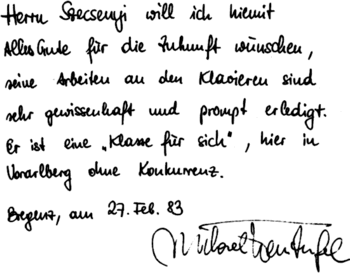 Herrn Szecsenyi will ich hiemit
Alles Gute für die Zukunft wünschen,
seine Arbeiten an den Klavieren sind
sehr gewissenhaft und prompt erledigt.
Er ist eine „Klasse für sich“, hier in
Vorarlberg ohne Konkurrenz.
Bregenz, am 27. Feb. 83